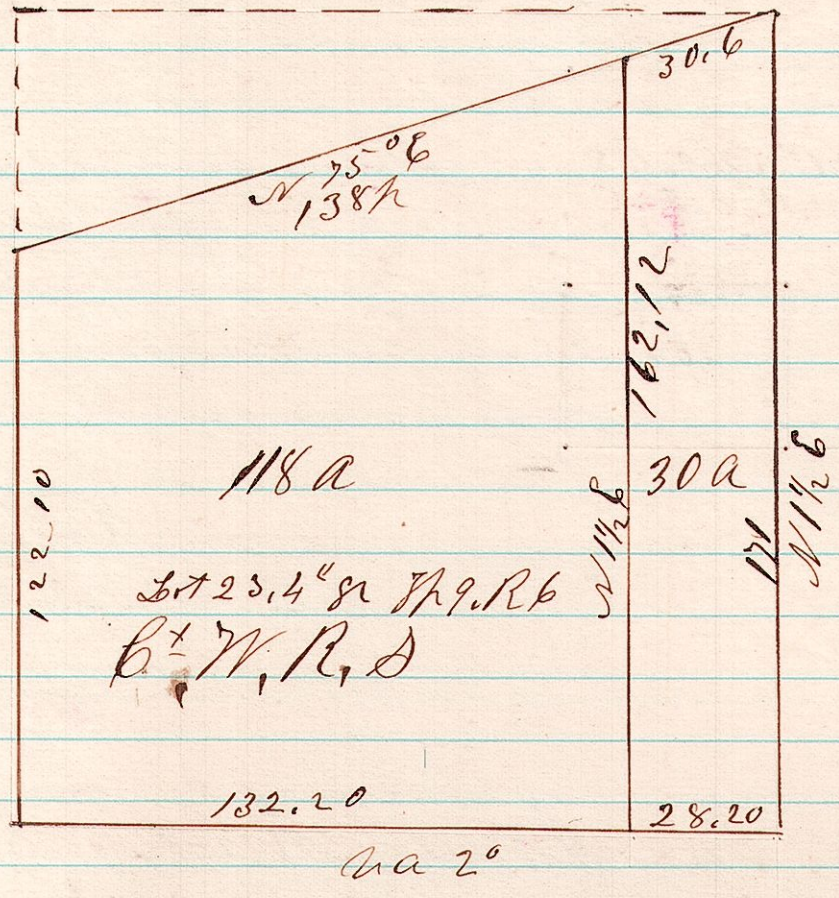 30.6
N 75° E
138 p
162.12
122.10
118 a
N 1½ E
30 a
171
N 1½ E
Lot 23, 4" qr Tp 9, R 6
C^t, W, R, S
132.20
28.20
2°